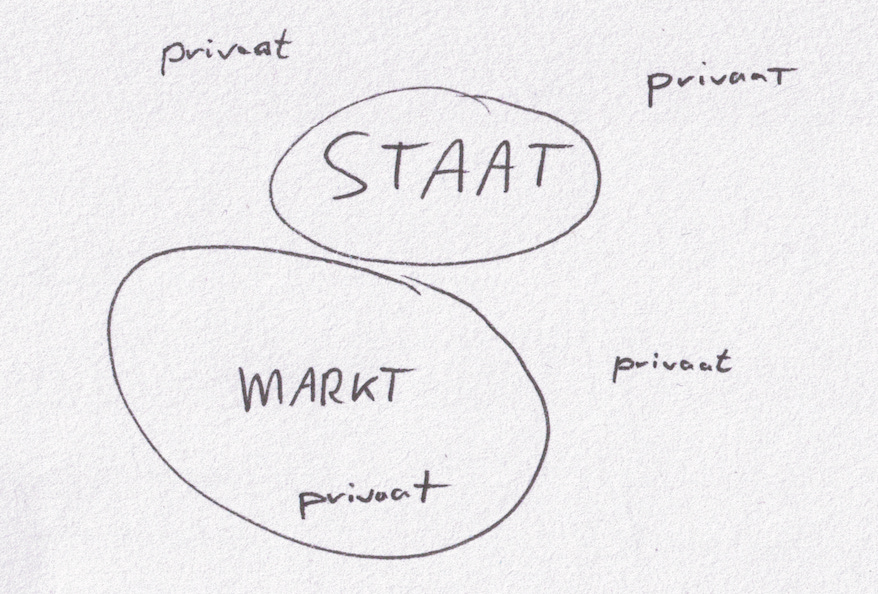 privaat
privaat
STAAT
privaat
MARKT
privaat